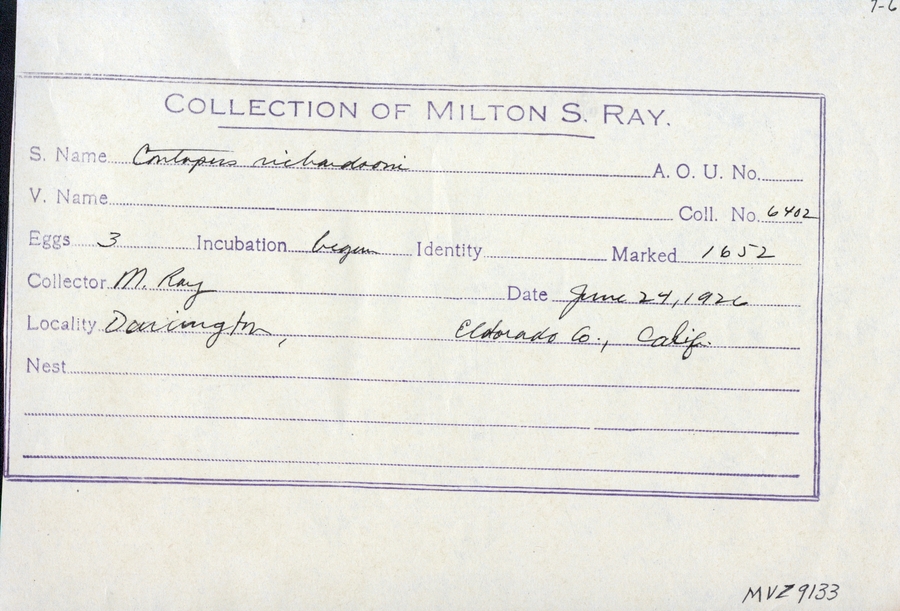 7-6
COLLECTION OF MILTON S. RAY.
S. Name Contopus richardsoni A. O. U. No.
V. Name Coll. No. 6402
Eggs 3 Incubation begun Identity Marked 1652
Collector M. Ray Date June 24, 1926
Locality Darrington, Eldorado Co., Calif.
Nest
MVZ 9133